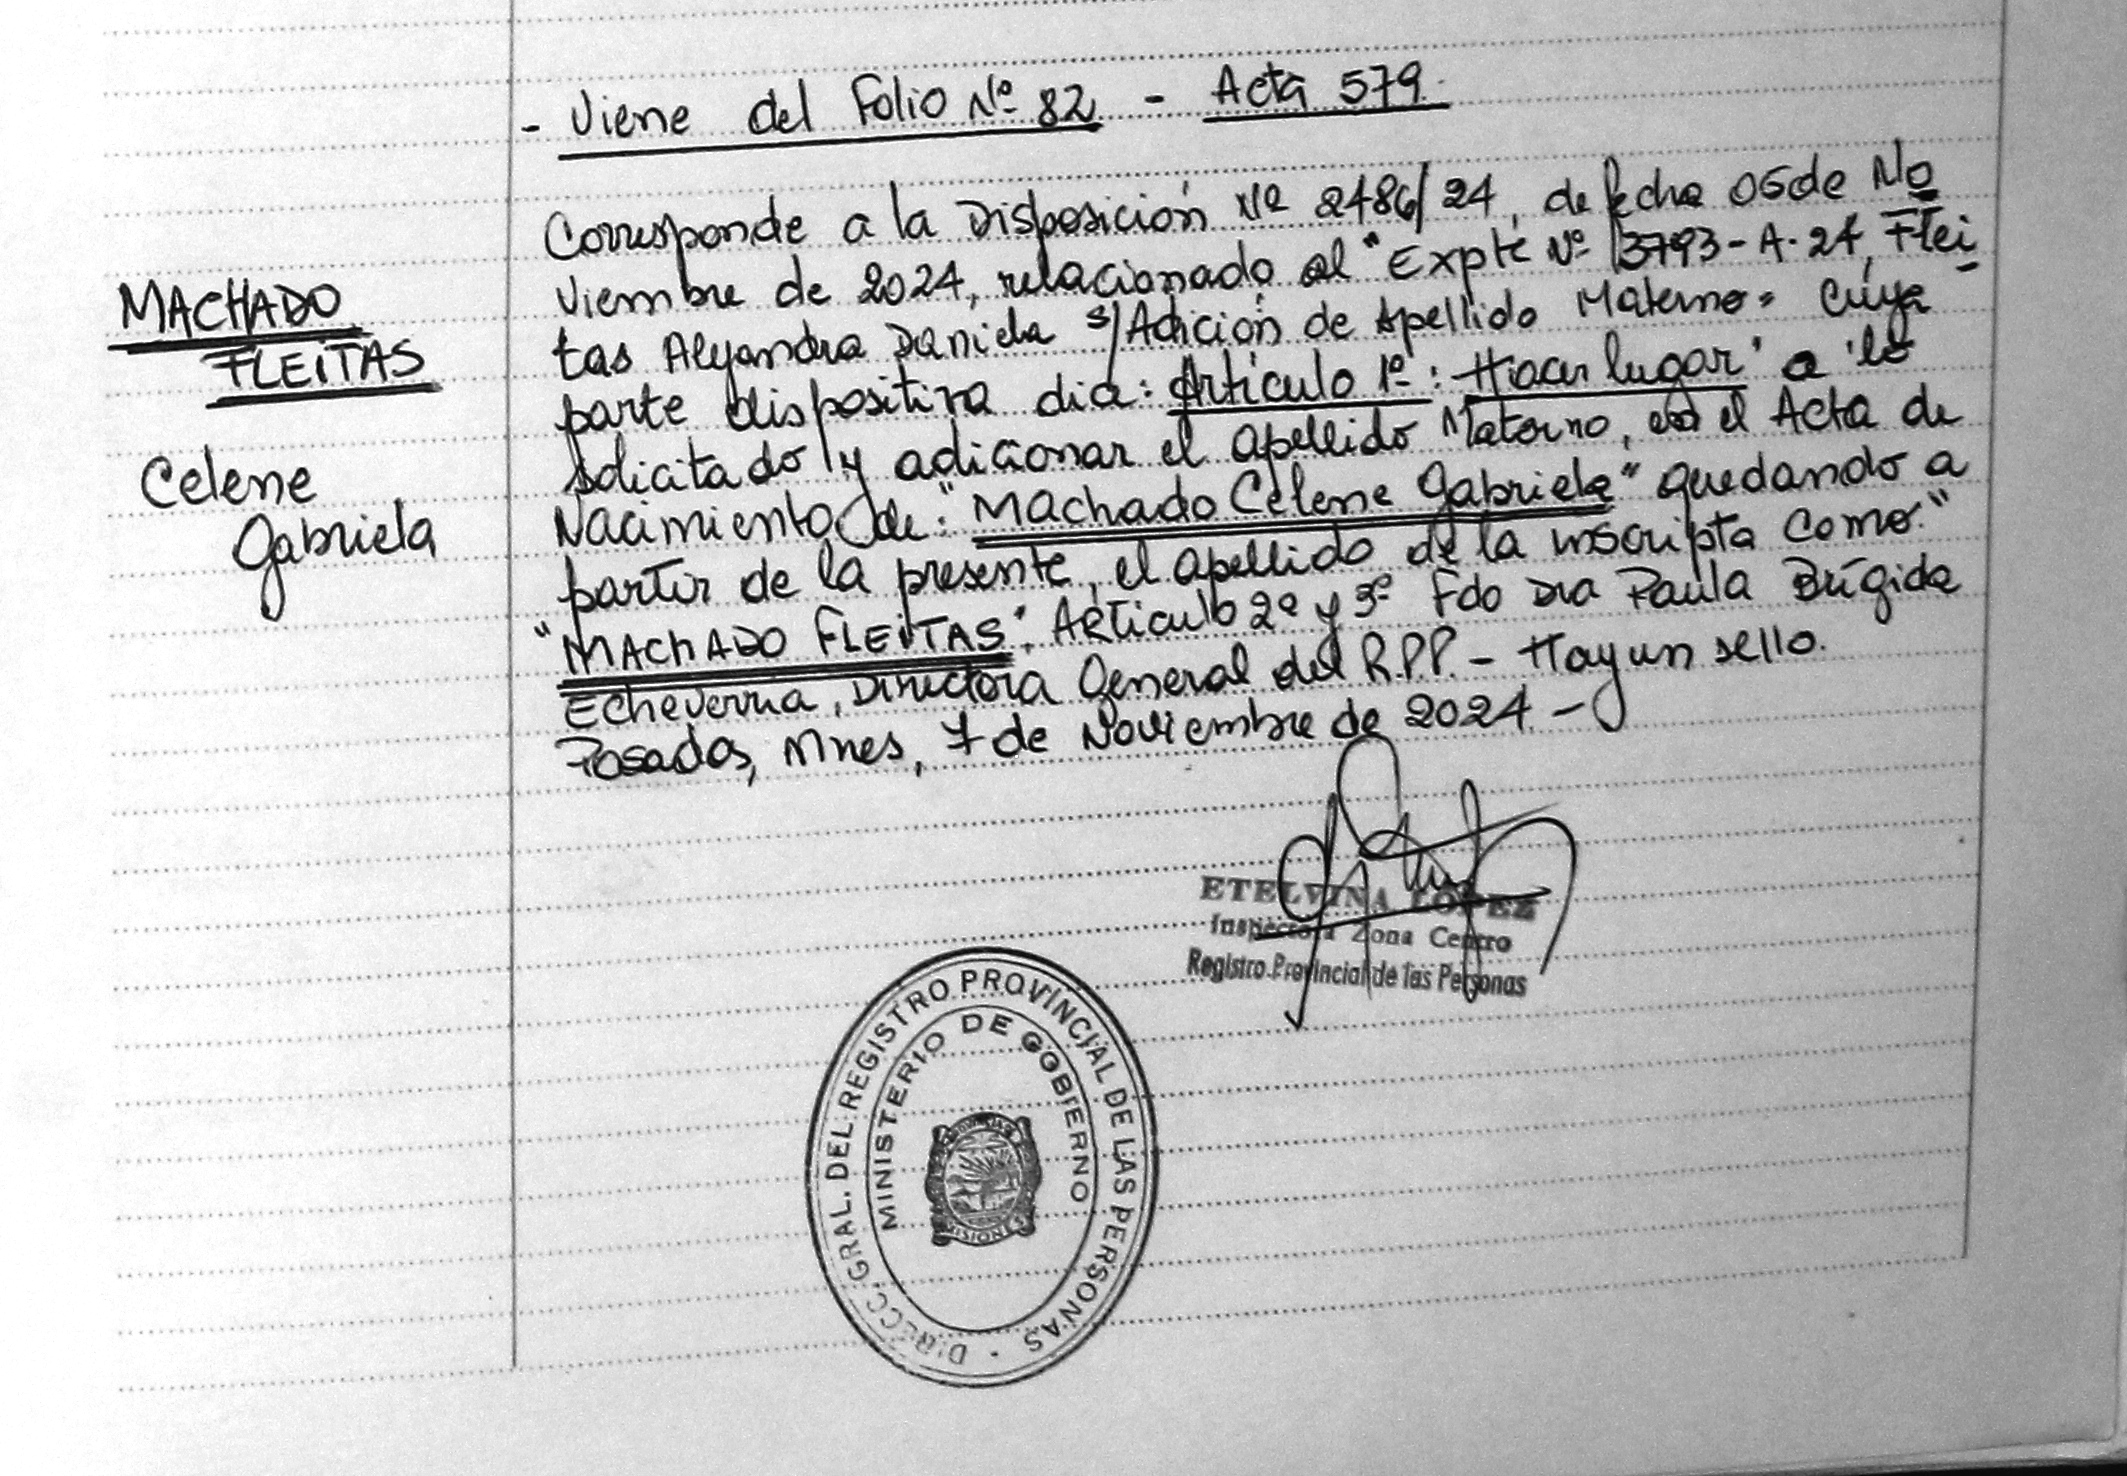 - Viene del Folio Nº 82 - Acta 579.
MACHADO
FLEITAS
Celene
Gabriela
Corresponde a la Disposición Nº 2486/24, de fecha 05 de No
viembre de 2024, relacionado al "Expte Nº 3793-A-24, Flei
tas Alejandra Daniela s/Adición de Apellido Materno" Cuya
parte dispositiva dia: Artículo 1º: Hacer lugar a lo
solicitado y adicionar el apellido Materno, en el Acta de
Nacimiento de: "Machado Celene Gabriela" quedando a
partir de la presente, el apellido de la inscripta como:"
"MACHADO FLEITAS". Artículo 2º y 3º Fdo Dra Paula Brígida
Echeverria, Directora General del R.P.P. - Hay un sello.
Posadas, Mnes, 7 de Noviembre de 2024 -
ETELVINA LOPEZ
Inspectora Zona Centro
Registro Provincial de las Personas
DIRECC. GRAL. DEL REGISTRO PROVINCIAL DE LAS PERSONAS
MINISTERIO DE GOBIERNO
PROVINCIA
MISIONES